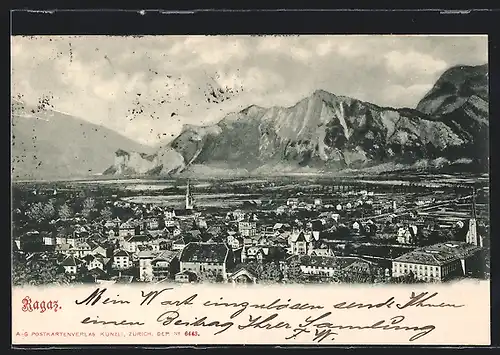 Ragaz.
Mein Wart einzulösen sende Ihnen
einen Beitrag Ihrer Sammlung
F. W.
A-G POSTKARTENVERLAG KÜNZLI, ZÜRICH. DEP. Nº 6463.